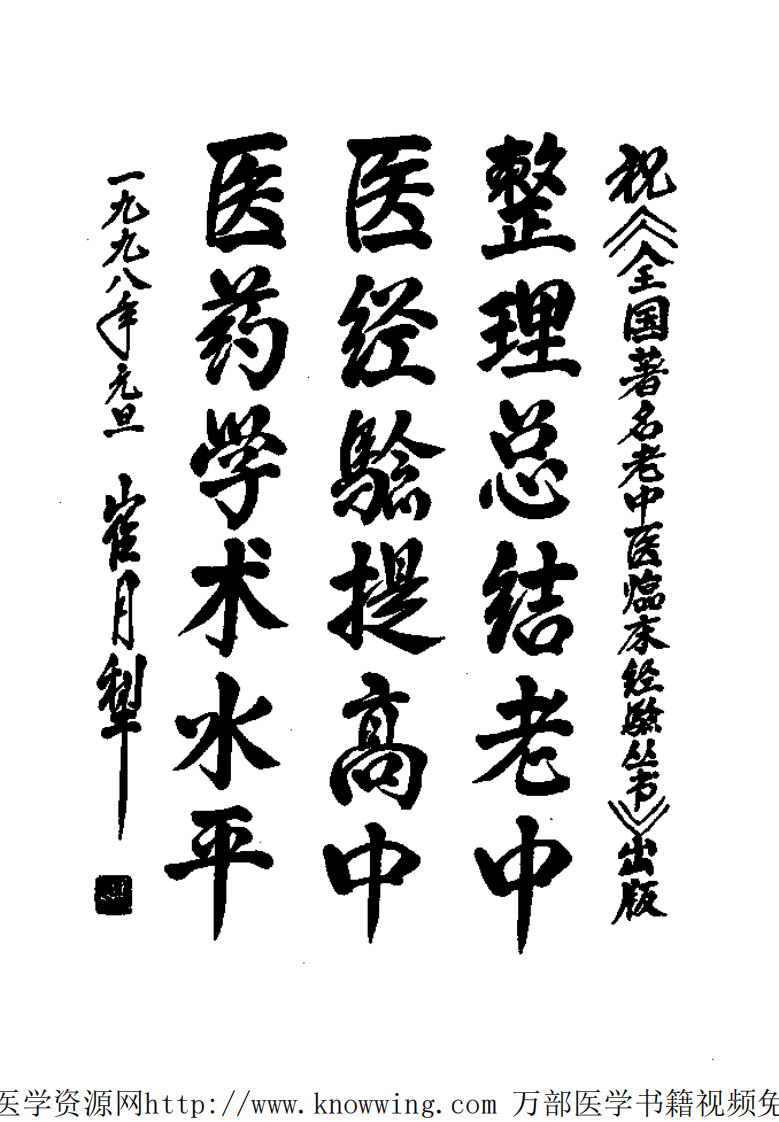 祝《全国著名老中医临床经验丛书》出版
整理总结老中
医经验提高中
医药学术水平
一九九八年元旦 崔月犁
医学资源网http://www.knowwing.com 万部医学书籍视频免